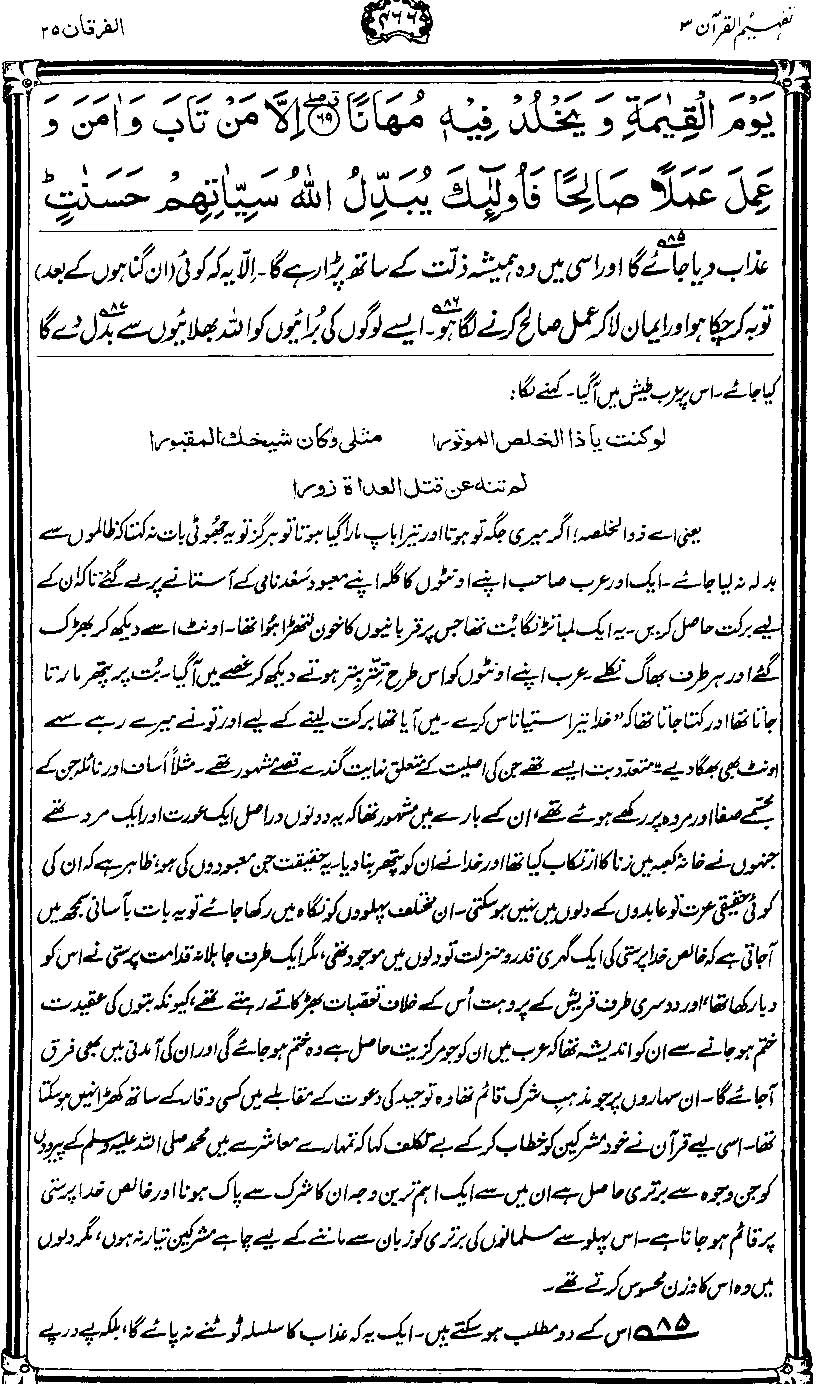 تفہیم القرآن ۳ ۴۶۶ الفرقان ۲۵
يَوْمَ الْقِيٰمَةِ وَ يَخْلُدْ فِيْهٖ مُهَانًا ۝۶۹ اِلَّا مَنْ تَابَ وَ اٰمَنَ وَ
عَمِلَ عَمَلًا صَالِحًا فَاُولٰٓئِكَ يُبَدِّلُ اللّٰهُ سَيِّاٰتِهِمْ حَسَنٰتٍ ؕ
عذاب دیا جائے گا ۸۵ اور اسی میں وہ ہمیشہ ذلّت کے ساتھ پڑا رہے گا۔ اِلّا یہ کہ کوئی (ان گناہوں کے بعد)
توبہ کر چکا ہو اور ایمان لا کر عمل صالح کرنے لگا ہو ۸۶۔ ایسے لوگوں کی بُرائیوں کو اللہ بھلائیوں سے بدل دے گا ۸۷
کیا جائے۔ اس پر عرب طیش میں آگیا۔ کہنے لگا:
لو كنت يا ذا الخلص الموتورا مثلي وكان شيخك المقبورا
لم تنه عن قتل العداة زورا
یعنی اے ذوالخلصہ! اگر میری جگہ تو ہوتا اور تیرا باپ مارا گیا ہوتا تو ہرگز تو یہ جھوٹی بات نہ کہتا کہ ظالموں سے
بدلہ نہ لیا جائے۔ ایک اور عرب صاحب اپنے اونٹوں کا گلہ اپنے معبود سَعْد نامی کے آستانے پر لے گئے تاکہ ان کے
لیے برکت حاصل کریں۔ یہ ایک لمبا تڑنگا بُت تھا جس پر قربانیوں کا خون لتھڑا ہُوا تھا۔ اونٹ اسے دیکھ کر بھڑک
گئے اور ہر طرف بھاگ نکلے۔ عرب اپنے اونٹوں کو اس طرح تِتّر بِتر ہوتے دیکھ کر غصے میں آگیا۔ بُت پر پتھر مارتا
جاتا تھا اور کہتا جاتا تھا کہ "خدا تیرا ستیاناس کرے۔ میں آیا تھا برکت لینے کے لیے اور تو نے میرے رہے سہے
اونٹ بھی بھگا دیے"۔ متعدد بت ایسے تھے جن کی اصلیت کے متعلق نہایت گندے قصے مشہور تھے۔ مثلاً اُساف اور نائلہ جن کے
مجسّمے صفا اور مروہ پر رکھے ہوئے تھے، ان کے بارے میں مشہور تھا کہ یہ دونوں دراصل ایک عورت اور ایک مرد تھے
جنہوں نے خانہ کعبہ میں زنا کا ارتکاب کیا تھا اور خدا نے ان کو پتھر بنا دیا۔ یہ حقیقت جن معبودوں کی ہو، ظاہر ہے کہ ان کی
کوئی حقیقی عزت تو عابدوں کے دلوں میں نہیں ہو سکتی۔ ان مختلف پہلوؤں کو نگاہ میں رکھا جائے تو یہ بات بآسانی سمجھ میں
آجاتی ہے کہ خالص خدا پرستی کی ایک گہری قدر و منزلت تو دلوں میں موجود تھی، مگر ایک طرف جاہلانہ قدامت پرستی نے اس کو
دبا رکھا تھا، اور دوسری طرف قریش کے پروہت اُس کے خلاف تعصبات بھڑکاتے رہتے تھے، کیونکہ بتوں کی عقیدت
ختم ہو جانے سے ان کو اندیشہ تھا کہ عرب میں ان کو جو مرکزیت حاصل ہے وہ ختم ہو جائے گی اور ان کی آمدنی میں بھی فرق
آجائے گا۔ ان سہاروں پر جو مذہبِ شرک قائم تھا وہ توحید کی دعوت کے مقابلے میں کسی وقار کے ساتھ کھڑا نہیں ہو سکتا
تھا۔ اسی لیے قرآن نے خود مشرکین کو خطاب کر کے بے تکلف کہا کہ تمہارے معاشرے میں محمد صلی اللہ علیہ وسلم کے پیروؤں
کو جن وجوہ سے برتری حاصل ہے ان میں سے ایک اہم ترین وجہ ان کا شرک سے پاک ہونا اور خالص خدا پرستی
پر قائم ہو جانا ہے۔ اس پہلو سے مسلمانوں کی برتری کو زبان سے ماننے کے لیے چاہے مشرکین تیار نہ ہوں، مگر دلوں
میں وہ اس کا وزن محسوس کرتے تھے۔
۸۵ اس کے دو مطلب ہو سکتے ہیں۔ ایک یہ کہ عذاب کا سلسلہ ٹوٹنے نہ پائے گا، بلکہ پے در پے